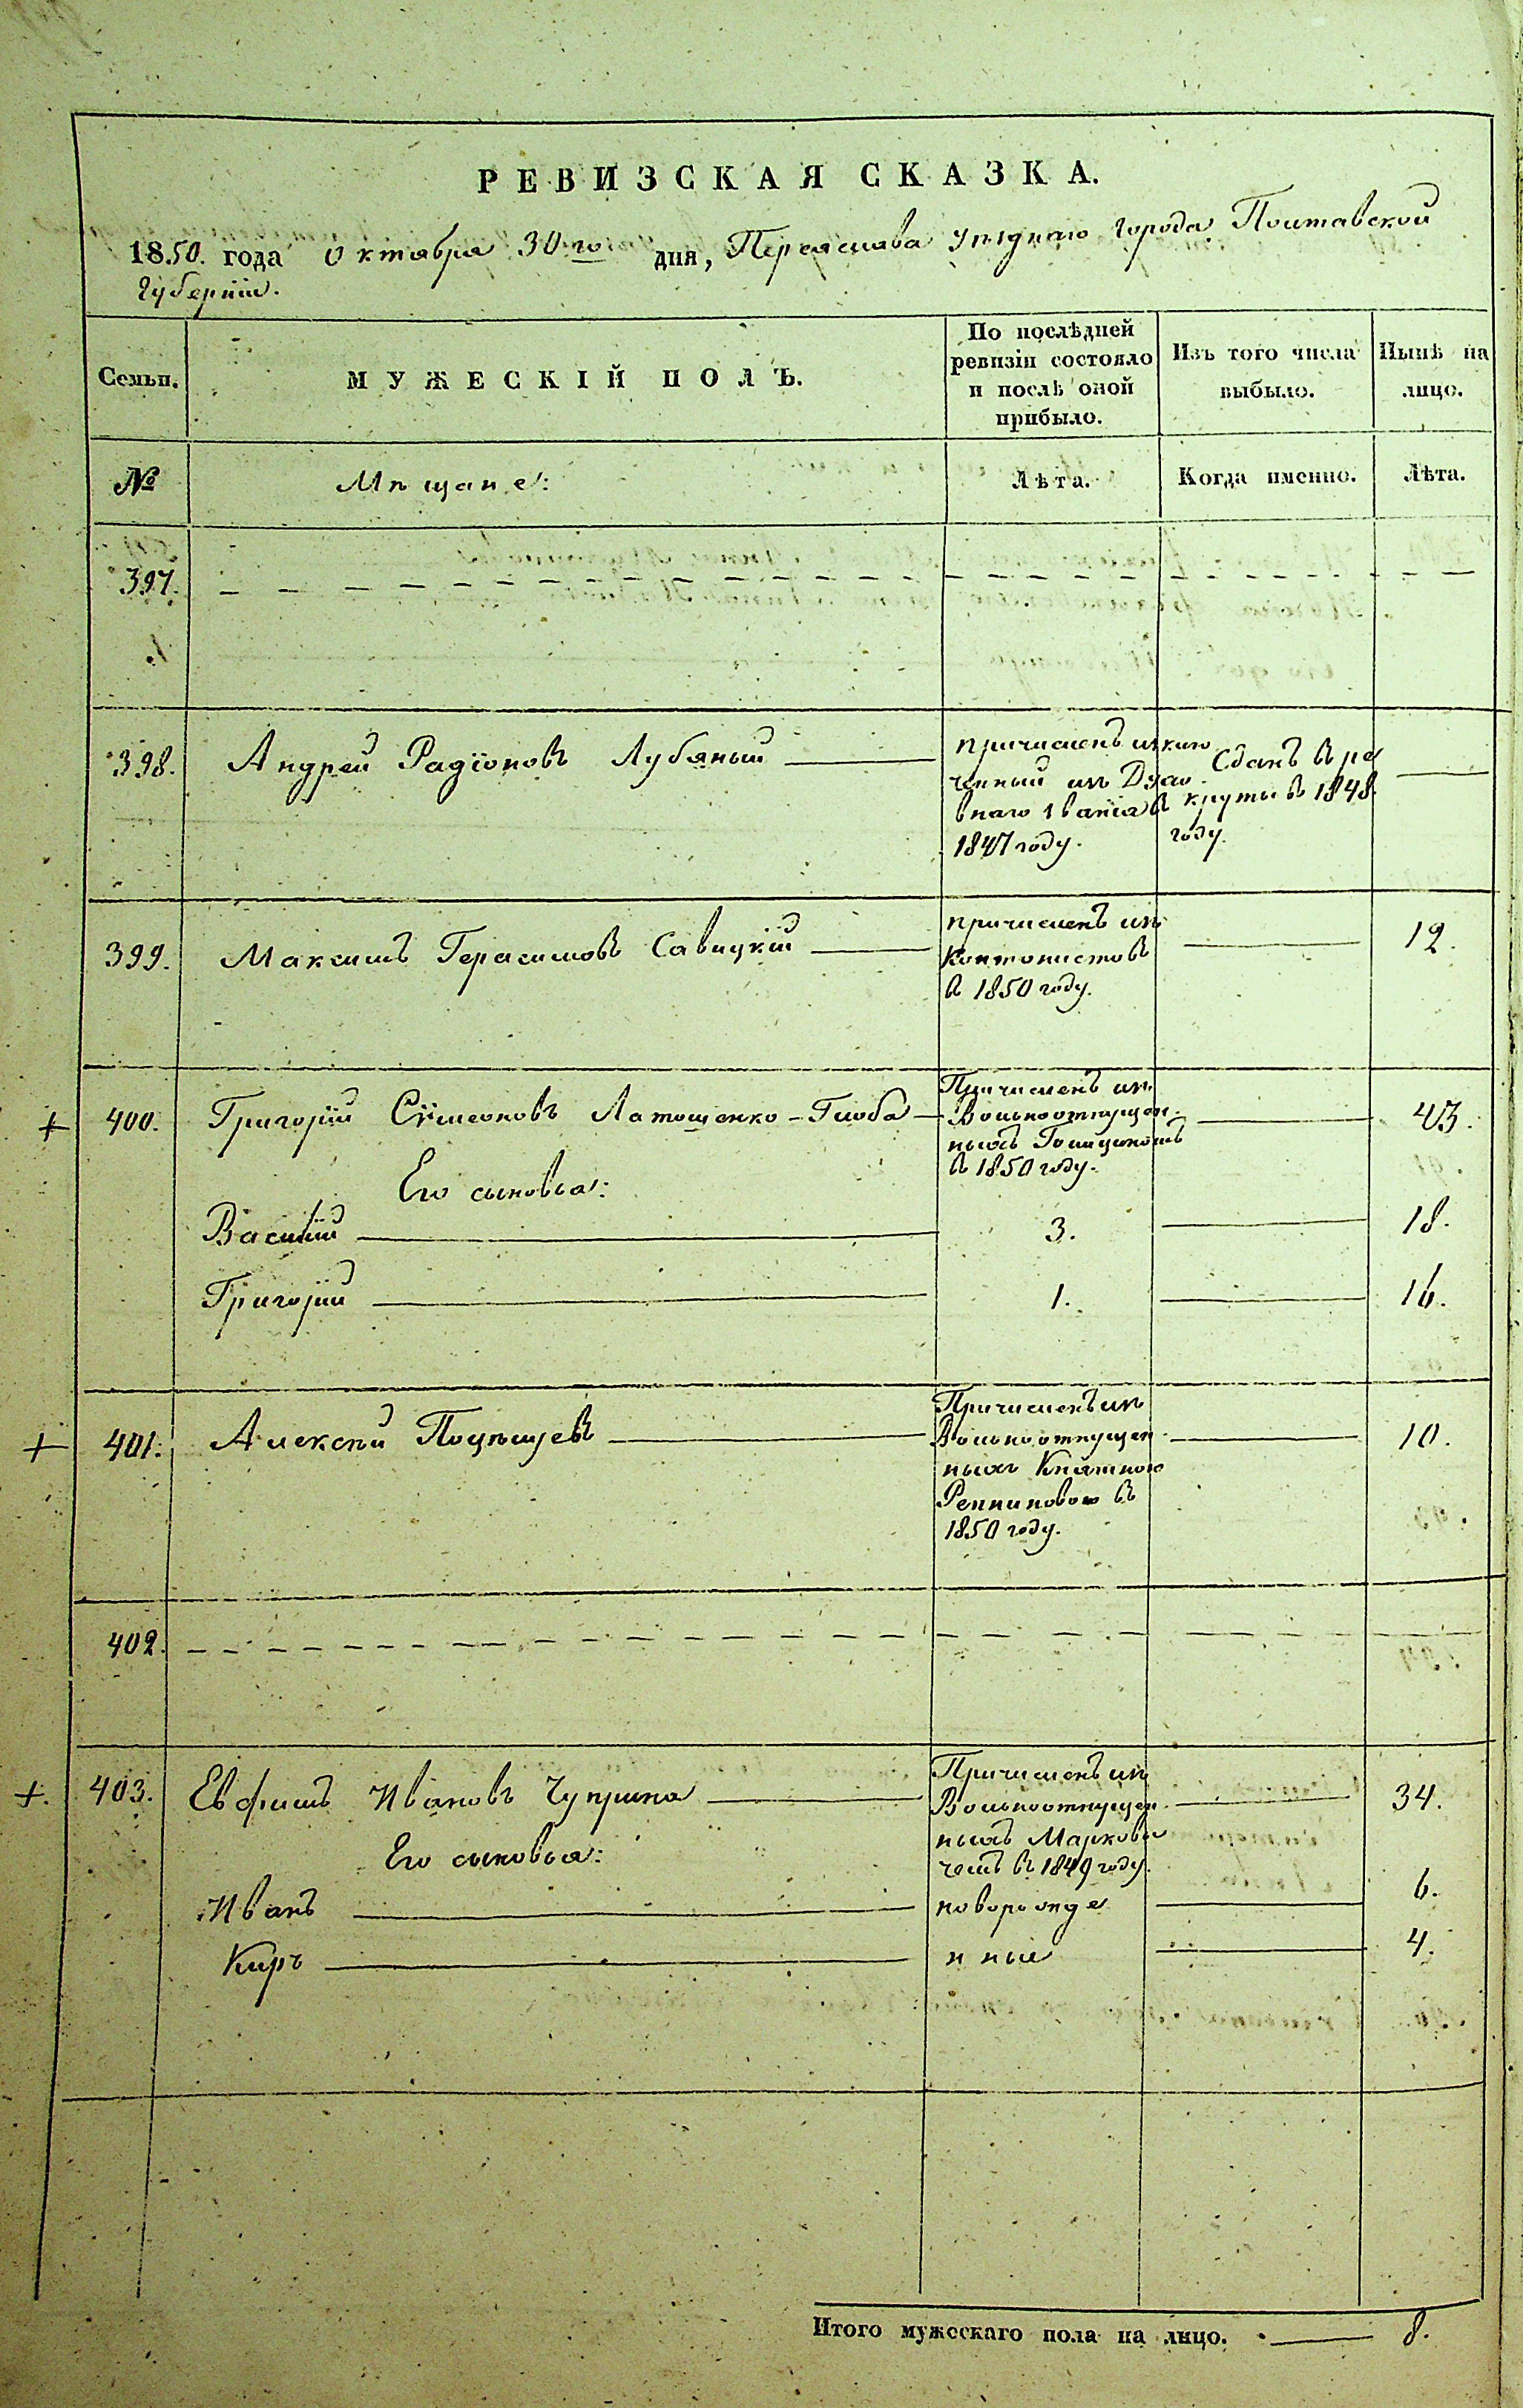 РЕВИЗСКАЯ СКАЗКА.
1850. года Октября 30го дня, Переяслава уѣзднаго города Полтавской
Губерніи.
Семьи.
МУЖЕСКІЙ ПОЛЪ.
По послѣдней
ревизіи состояло
и послѣ оной
прибыло.
Изъ того числа
выбыло.
Нынѣ на
лицо.
№
Мѣщане:
Лѣта.
Когда именно.
Лѣта.
397.
398. Андрей Радіоновъ Лубяный
причисленъ исклю
ченный изъ Духо
внаго званія в
1847 году.
Сданъ в ре
круты в 1848
году.
399. Максимъ Герасимовъ Савицкій
причисленъ изъ
Кантонистовъ
в 1850 году.
12.
400. Григорій Сѵмеоновъ Латошенко-Глоба
Причисленъ изъ
Вольноотпущен
ныхъ Голицыномъ
в 1850 году.
43.
Его сыновья:
Василій 3. 18.
Григорій 1. 16.
401. Алексѣй Поцѣлуевъ
Причисленъ изъ
Вольноотпущен
ныхъ Княжною
Репниновою въ
1850 году.
10.
402.
403. Евфимъ Ивановъ Чуприна
Причисленъ изъ
Вольноотпущен
ныхъ Маркови
чемъ въ 1849 году.
34.
Его сыновья:
Иванъ новорожде 6.
Киръ нные 4.
Итого мужескаго пола на лицо. 8.